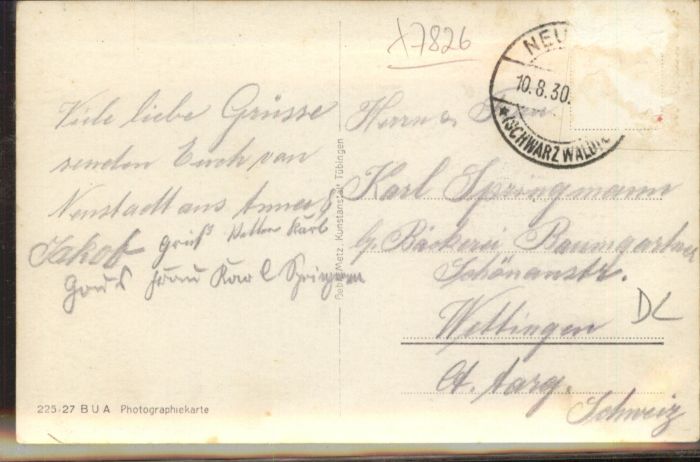 x7826
NEU
10.8.30.
*(SCHWARZWALD)
Viele liebe Grüsse
senden Euch von
Neustadt aus Anna &
Jakob Gruß Vetter Karl
Gruß Frau Karl Springm
Herrn & Frau
Karl Springmann
b/ Bäckerei Baumgartner
Schönaustr.
Wettingen
Ct. Aarg.
Schweiz
DL
Gebr. Metz, Kunstanstalt, Tübingen
225/27 B U A Photographiekarte